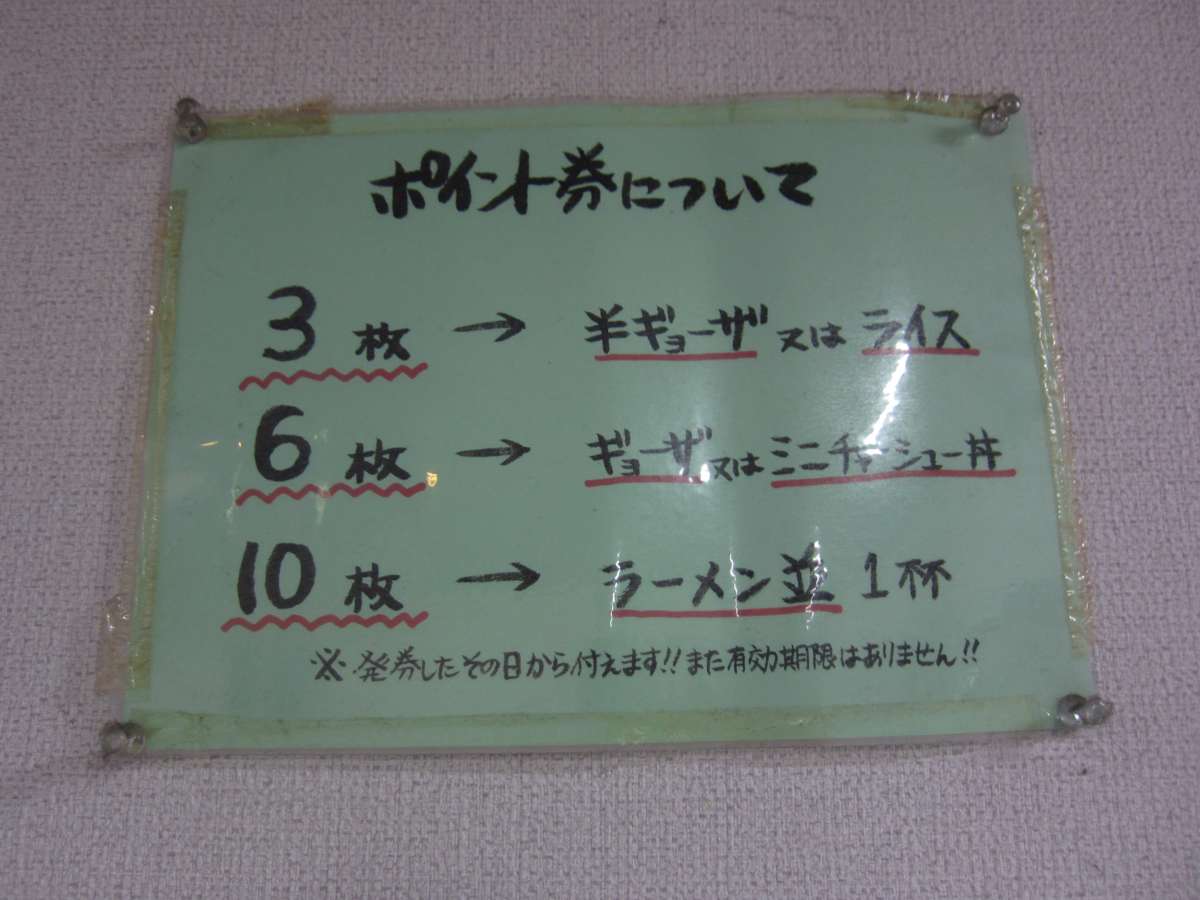 ポイント券について
3枚 → 半ギョーザ 又は ライス
6枚 → ギョーザ 又は ミニチャーシュー丼
10枚 → ラーメン並 1杯
※ 発券したその日から付えます!! また有効期限はありません!!